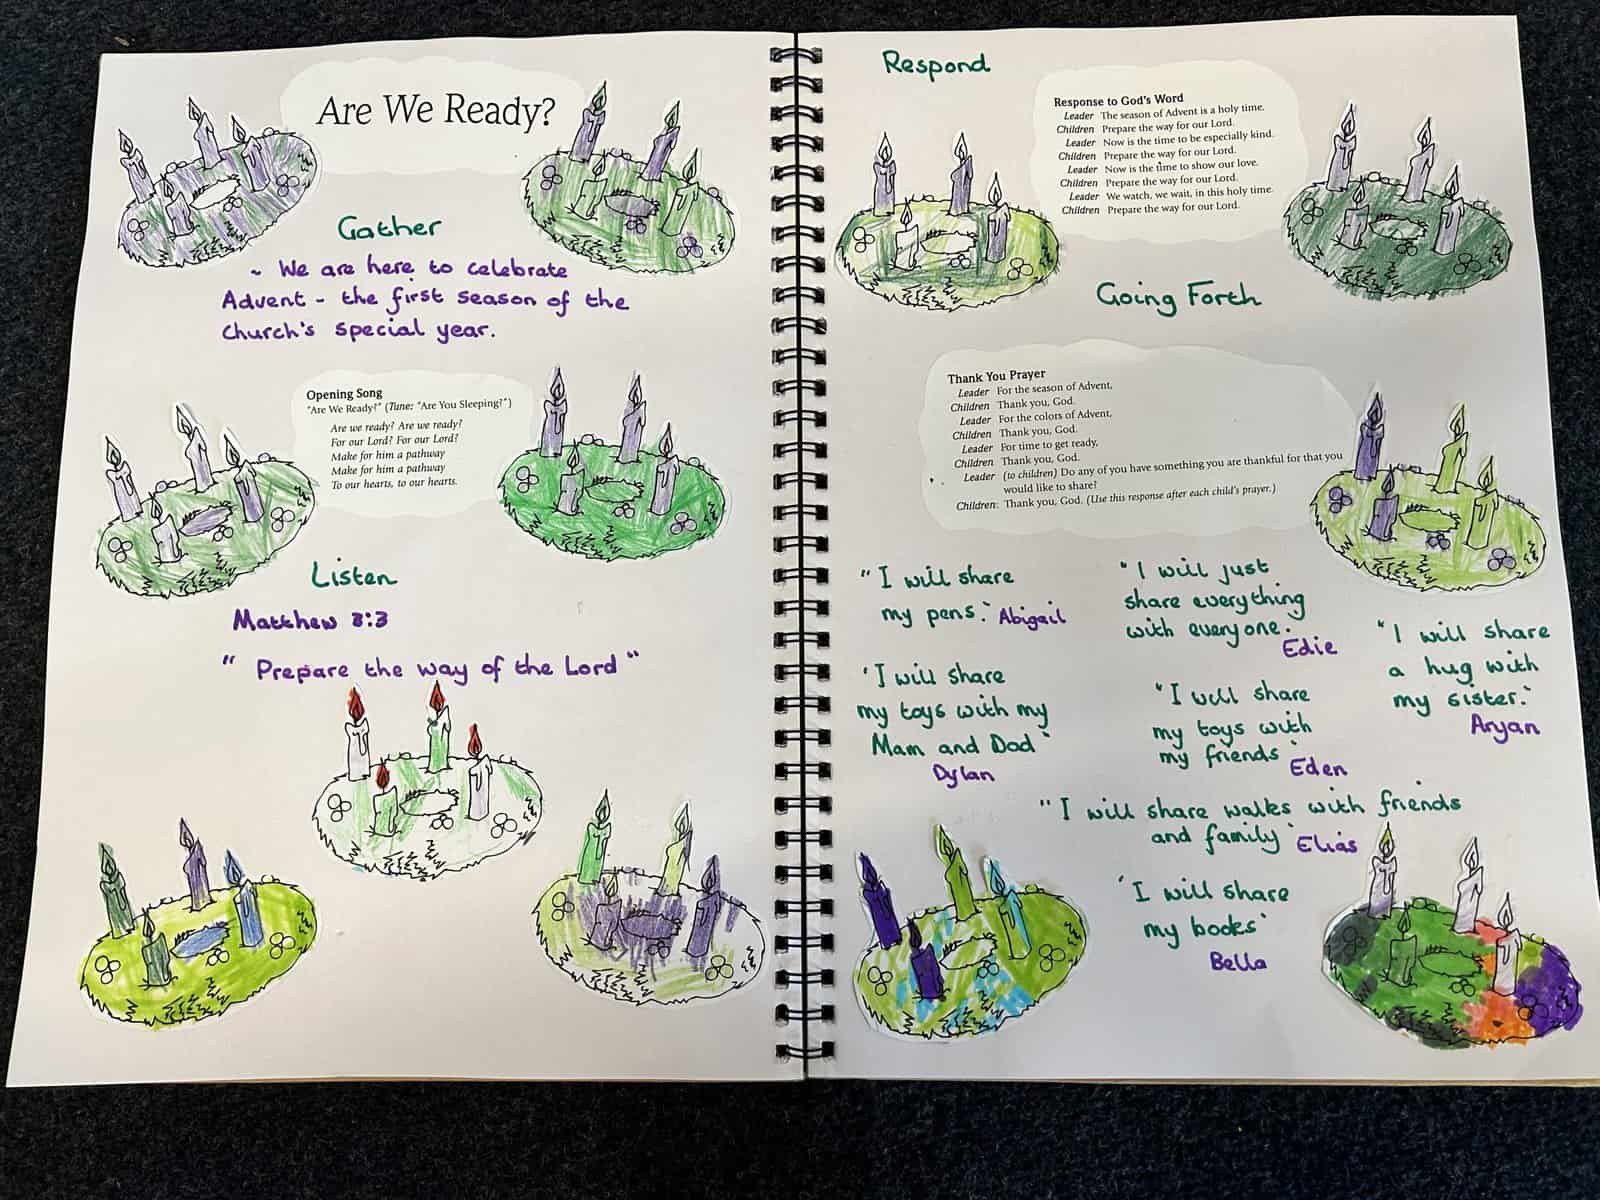 Are We Ready?
Gather
~ We are here to celebrate
Advent - the first season of the
Church's special year.
Opening Song
"Are We Ready?" (Tune: "Are You Sleeping?")
Are we ready? Are we ready?
For our Lord? For our Lord?
Make for him a pathway
Make for him a pathway
To our hearts, to our hearts.
Listen
Matthew 3:3
" Prepare the way of the Lord "
Respond
Response to God's Word
Leader The season of Advent is a holy time.
Children Prepare the way for our Lord.
Leader Now is the time to be especially kind.
Children Prepare the way for our Lord.
Leader Now is the time to show our love.
Children Prepare the way for our Lord.
Leader We watch, we wait, in this holy time.
Children Prepare the way for our Lord.
Going Forth
Thank You Prayer
Leader For the season of Advent,
Children Thank you, God.
Leader For the colors of Advent,
Children Thank you, God.
Leader For time to get ready,
Children Thank you, God.
Leader (to children) Do any of you have something you are thankful for that you
would like to share?
Children: Thank you, God. (Use this response after each child's prayer.)
"I will share
my pens." Abigail
"I will just
share everything
with everyone."
Edie
"I will share
a hug with
my sister."
Aryan
'I will share
my toys with my
Mam and Dad'
Dylan
"I will share
my toys with
my friends" Eden
"I will share walks with friends
and family" Elias
'I will share
my books'
Bella